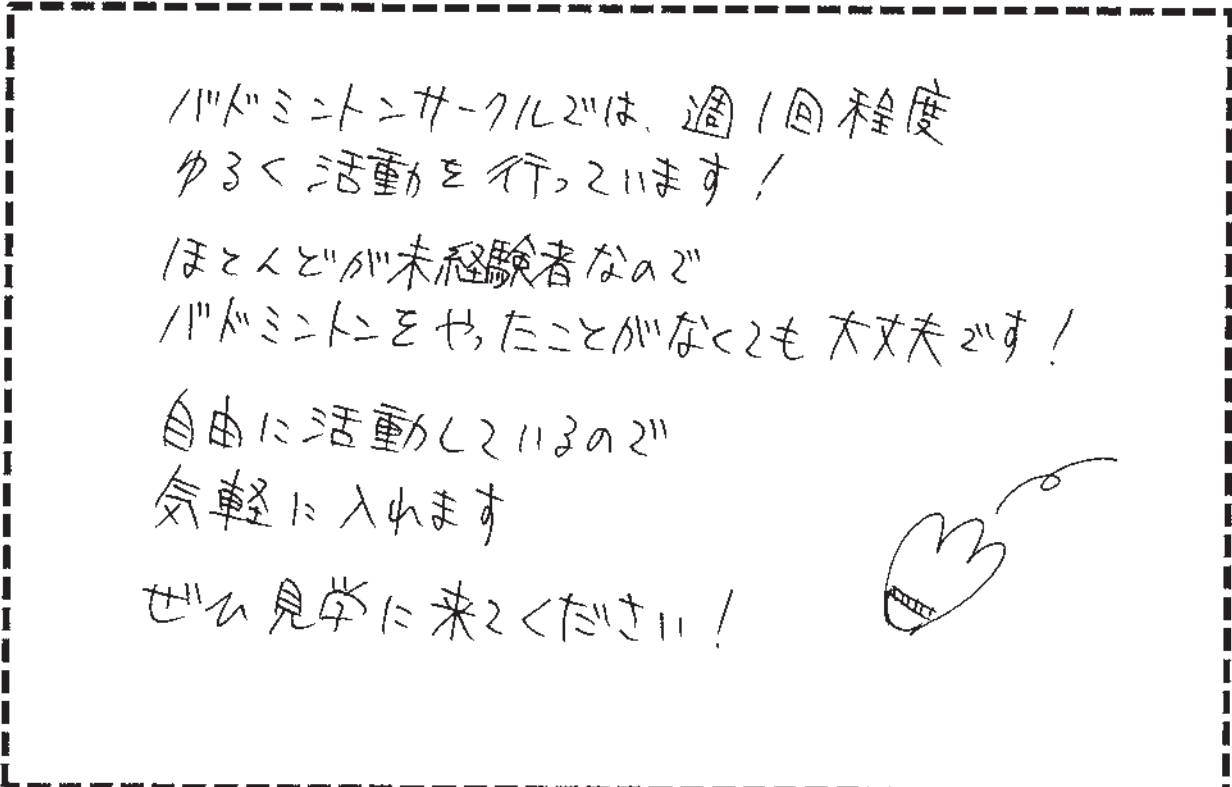 バドミントンサークルでは、週1回程度
ゆるく活動を行っています!
ほとんどが未経験者なので
バドミントンをやったことがなくても大丈夫です!
自由に活動しているので
気軽に入れます
ぜひ見学に来てください!